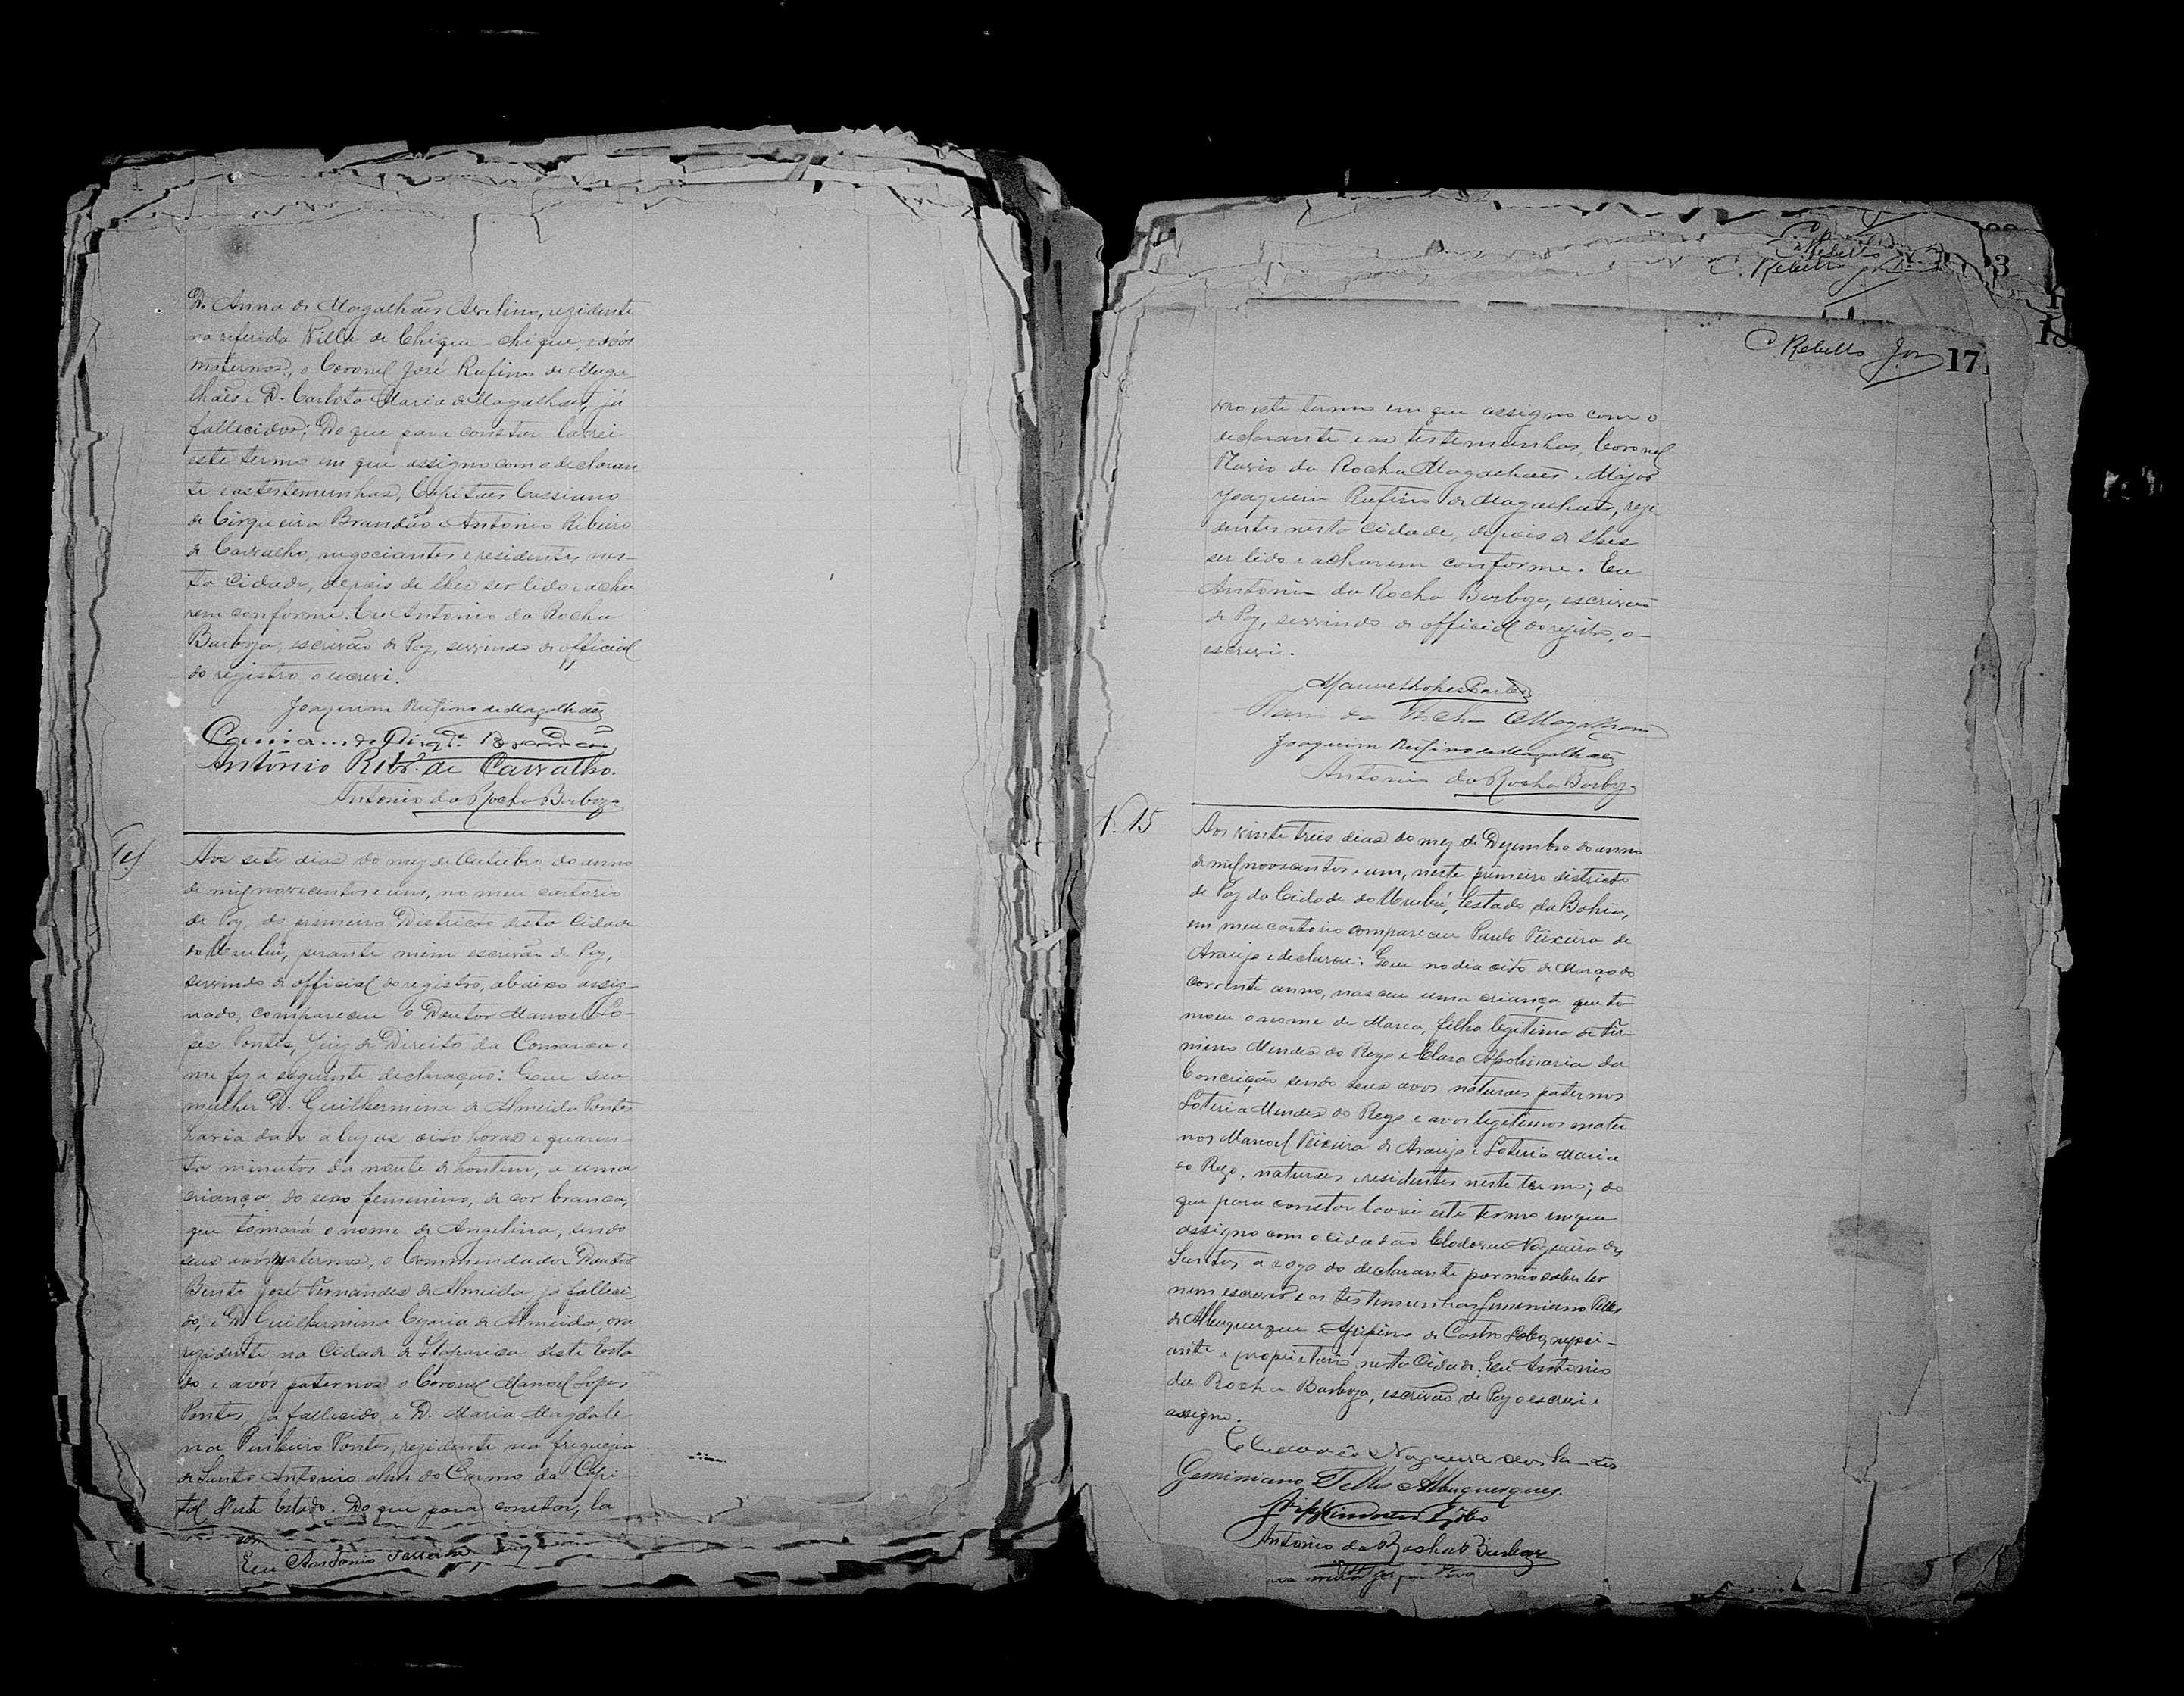 D. Anna de Magalhães Avelino, rezidente
na referida Villa de Chique-chique, e avós
maternos, o Coronel José Rufino de Maga
lhães e D. Carlota Maria de Magalhães, já
fallecidos; Do que para constar lavrei
este termo em que assigno com o declaran
te e as testemunhas, Capitães Cassiano
de Cirqueira Brandão e Antonio Ribeiro
de Carvalho, negociantes e residentes nes-
ta cidade, depois de lhes ser lido e acha
rem conforme. Eu Antonio da Rocha
Barboza, escrivão de Paz, servindo de official
do registro o escrevi.
Joaquim Rufino de Magalhães
Cassiano de Cirqª. Brandão
António Ribrº. de Carvalho.
Antonio da Rocha Barboza
Aos sete dias do mez de Outubro do anno
de mil novecentos e um, no meu cartorio
de Paz, do primeiro Districto desta Cidade
do Urubú, perante mim escrivão de Paz,
servindo de official do registro, abaixo assig-
nado, compareceu o Doutor Manoel Lo-
pes Pontes, Juiz de Direito da Comarca e
me fez a seguinte declaração: Que sua
mulher D. Guilhermina de Almeida Pontes
havia dado a luz as oito horas e quaren-
ta minutos da noute de hontem, a uma
criança do sexo femenino, de cor branca,
que tomará o nome de Angelina, sendo
seus avós maternos, o Commendador Doutor
Bento José Fernandes de Almeida, já falleci-
do, e D. Guilhermina de Almeida, ora
rezidente na Cidade de Itaparica deste Esta
do e avós paternos o Coronel Manoel Lopes
Pontes, já fallecido e D. Maria Magdale
na Pinheiro Pontes, rezidente na freguezia
de Santo Antonio alem do Carmo da Capi
tal d'este Estado. Do que para constar, la
Eu Antonio
C Rebello Jor 171
vro este termo em que assigno com o
declarante e as testemunhas, Coronel
Flavio da Rocha Magalhães e Major
Joaquim Rufino de Magalhães, rezi
dentes nesta cidade, depois de lhes
ser lido e acharem conforme. Eu
Antonio da Rocha Barboza, escrivão
de Paz, servindo de official do registro, o-
escrevi.
Manoel Lopes Pontes
Flavio da Rocha Magalhães
Joaquim Rufino de Magalhães
Antonio da Rocha Barboza
N. 15
Aos vinte treis dias do mez de Dezembro do anno
de mil novecentos e um, neste primeiro districto
de Paz da Cidade do Urubú, Estado da Bahia,
em meu cartorio compareceu Paulo Teixeira de
Araujo e declarou: Que no dia oito de Março do
corrente anno, nasceu uma criança que to
mou o nome de Maria, filha legitima de Fir-
mino Mendes do Rego e Clara Apolinaria da
Conceição sendo seus avos naturaes paternos
Loteria Mendes do Rego e avos legitimos mater
nos Manoel Teixeira de Araujo e Loteria Maria
do Rego, naturaes e residentes neste termo; do
que para constar lavrei este termo em que
assigno com o cidadão Clodoveu Nogueira dos
Santos a rogo do declarante por não saber ler
nem escrever e as testemunhas Geminiano Telles
de Albuquerque e Agripino de Castro Lobo, negoci-
ante e proprietario nesta Cidade. Eu Antonio
da Rocha Barboza, escrivão de Paz o escrevi e
assigno.
Clodoveu Nogueira dos Santos
Geminiano Telles Albuquerque.
Antonio da Rocha Barboza